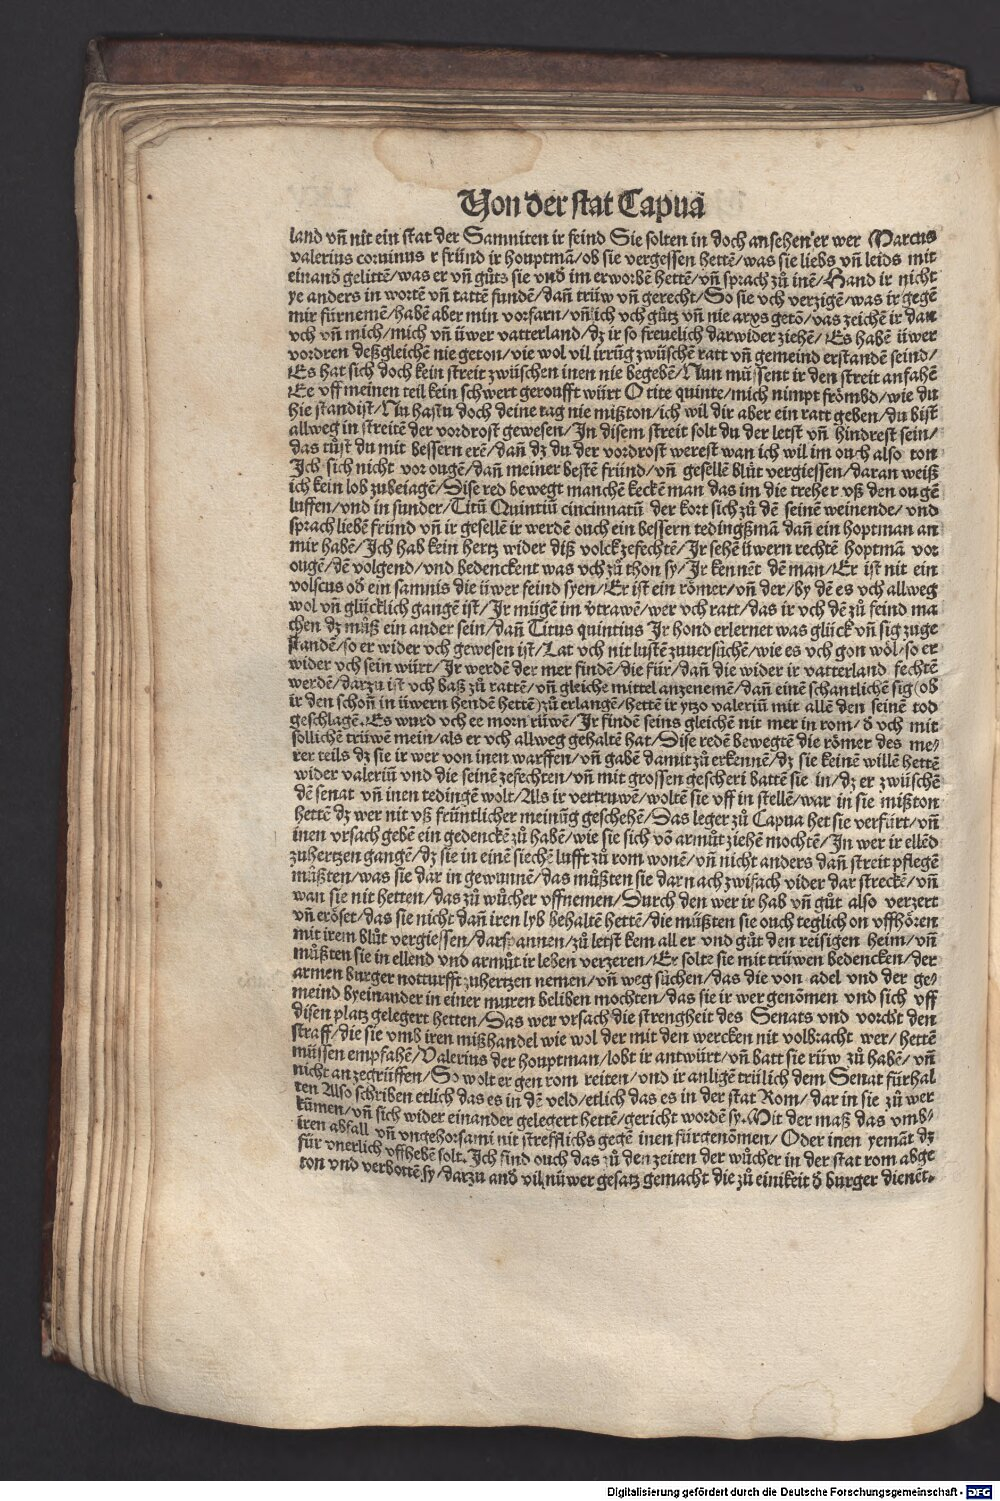 Von der stat Capuā
land vñ nit ein stat der Samniten ir feind Sie solten in doch ansehen er wer Marcus
valerius coruinus r fründ ir houptmā/ob sie vergessen hettē/was sie liebs vñ leids mit
einand gelittē/was er vñ gůts sie vnd im erworbē hettē/vñ sprach zů inē/Hand ir nicht
ye anders in wortē vñ tattē fundē/dañ trüw vñ gerecht/So sie vch verzigē/was ir gegē
mir fürnemē/habē aber min vorfarn/vñ ich vch gůtz vñ nie args getō/was zeichē ir dan
vch vñ mich/mich vñ üwer vatterland/dz ir so freuelich darwider ziehē/Es habē üwer
vordren deßgleichē nie geton/wie wol vil irrūg zwüschē ratt vñ gemeind erstandē seind/
Es hat sich doch kein streit zwüschen inen nie begebē/Nun müssent ir den streit anfahē
Ee vff meinen teil kein schwert geroufft würt O tite quinte/mich nimpt frömbd/wie du
hie standist/Nu hastu doch deine tag nie mißton/ich wil dir aber ein ratt geben/du bist
allweg in streitē der vordrost gewesen/In disem streit solt du der letst vñ hindrest sein/
das tůst du mit bessern erē/dañ dz du der vordrost werest wan ich wil im ouch also ton
Ich sich nicht vor ougē/dañ meiner bestē fründ/vñ gesellē blůt vergiessen/daran weiß
ich kein lob zubeiagē/Dise red bewegt manchē keckē man das im die treher vß den ougē
luffen/vnd in sunder/Titū Quintiū cincinnatū der kort sich zů dē seinē weinende/vnd
sprach liebē fründ vñ ir gesellē ir werdē ouch ein bessern tedingßmā dañ ein hoptman an
mir habē/Ich hab kein hertz wider diß volck zefechtē/Ir sehē üwern rechtē hoptmā vor
ougē/dē volgend/vnd bedenckent was vch zů thon sy/Ir kennēt dē man/Er ist nit ein
volscus od ein samnis die üwer feind syen/Er ist ein römer/vñ der/by dē es vch allweg
wol vñ glücklich gangē ist/Ir mügē im vtrawē/wer vch ratt/das ir vch dē zů feind ma
chen dz můß ein ander sein/dañ Titus quintius Ir hond erlernet was glück vñ sig zuge
standē/so er wider vch gewesen ist/Lat vch nit lustē zuuersůchē/wie es vch gon wöl/so er
wider vch sein würt/Ir werdē der mer findē/die für/dañ die wider ir vatterland fechtē
werdē/darzu ist vch baß zů rattē/vñ gleiche mittel anzenemē/dañ einē schantlichē sig(ob
ir den schon in üwern hendē hettē)zů erlangē/hettē ir ytzo valeriū mit allē den seinē tod
geschlagē/Es wurd vch ee morn rüwē/Ir findē seins gleichē nit mer in rom/d vch mit
söllichē trüwē mein/als er vch allweg gehaltē hat/Dise redē bewegtē die römer des me/
rer teils dz sie ir wer von inen warffen/vñ gabē damit zů erkennē/dz sie keinē willē hettē
wider valeriū vnd die seinē zefechten/vñ mit grossen gescheri battē sie in/dz er zwüschē
dē senat vñ inen tedingē wolt/Als ir vertruwē/woltē sie vff in stellē/war in sie mißton
hettē dz wer nit vß früntlicher meinūg geschehē/Das leger zů Capua het sie verfürt/vñ
inen vrsach gebē ein gedenckē zů habē/wie sie sich vō armůt ziehē mochtē/In wer ir ellēd
zuhertzen gangē/dz sie in einē siechē lufft zů rom wonē/vñ nicht anders dañ streit pflegē
můßten/was sie dar in gewunnē/das můßten sie darnach zwifach wider dar streckē/vñ
wan sie nit hetten/das zů wůcher vffnemen/Durch den wer ir hab vñ gůt also verzert
vñ eröset/das sie nicht dañ iren lyb behaltē hettē/die müßten sie ouch teglich on vffhören
mit irem blůt vergiessen/darspannen/zů letst kem all er vnd gůt den reisigen heim/vñ
můßten sie in ellend vnd armůt ir leben verzeren/Er solte sie mit trüwen bedencken/der
armen burger notturfft zuhertzen nemen/vñ weg sůchen/das die von adel vnd der ge/
meind byeinander in einer muren beliben mochten/das sie ir wer genōmen vnd sich vff
disen platz gelegert hetten/Das wer vrsach die strengheit des Senats vnd vorcht den
straff/die sie vmb iren mißhandel wie wol der mit den wercken nit volbracht wer/hettē
müssen empfahē/Valerius der houptman/lobt ir antwürt/vñ batt sie rüw zů habē/vñ
nicht anzegrüffen/So wolt er gen rom reiten/vnd ir anligē trülich dem Senat fürhal
ten Also schriben etlich das es in dē veld/etlich das es in der stat Rom/dar in sie zů wer
kūmen/vñ sich wider einander gelegert hettē/gericht wordē sy.Mit der maß das vmb/
iren abfall vñ vngehorsami nit strefflichs gegē inen fürgenōmen/Oder inen yemāt dz
für vnerlich vffhebē solt.Ich find ouch das zů den zeiten der wůcher in der stat rom abge
ton vnd verbottē sy/darzu and vil nüwer gesatz gemacht die zů einikeit d burger dienēt.
Digitalisierung gefördert durch die Deutsche Forschungsgemeinschaft - DFG